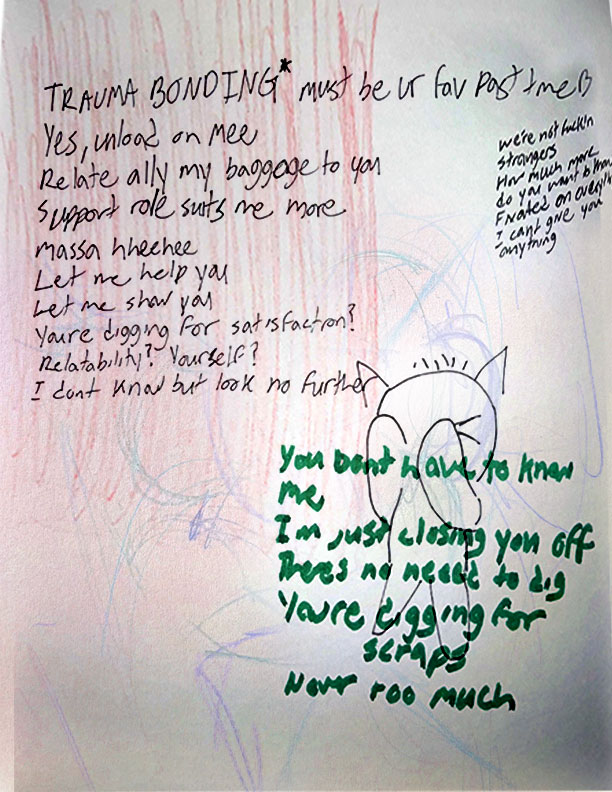 TRAUMA BONDING* must be ur fav past time
Yes, unload on mee
Relate ally my baggage to you
Support role suits me more
massa hheehee
Let me help you
Let me show you
Youre digging for satisfaction?
Relatability? Yourself?
I dont know but look no further
we're not fuckin
strangers
How much more
do you want to know
Fixated on everyth
I cant give you
anything
You Dont have to know
me
I'm just closing you off
Theres no need to dig
You're digging for
scraps
Never too much